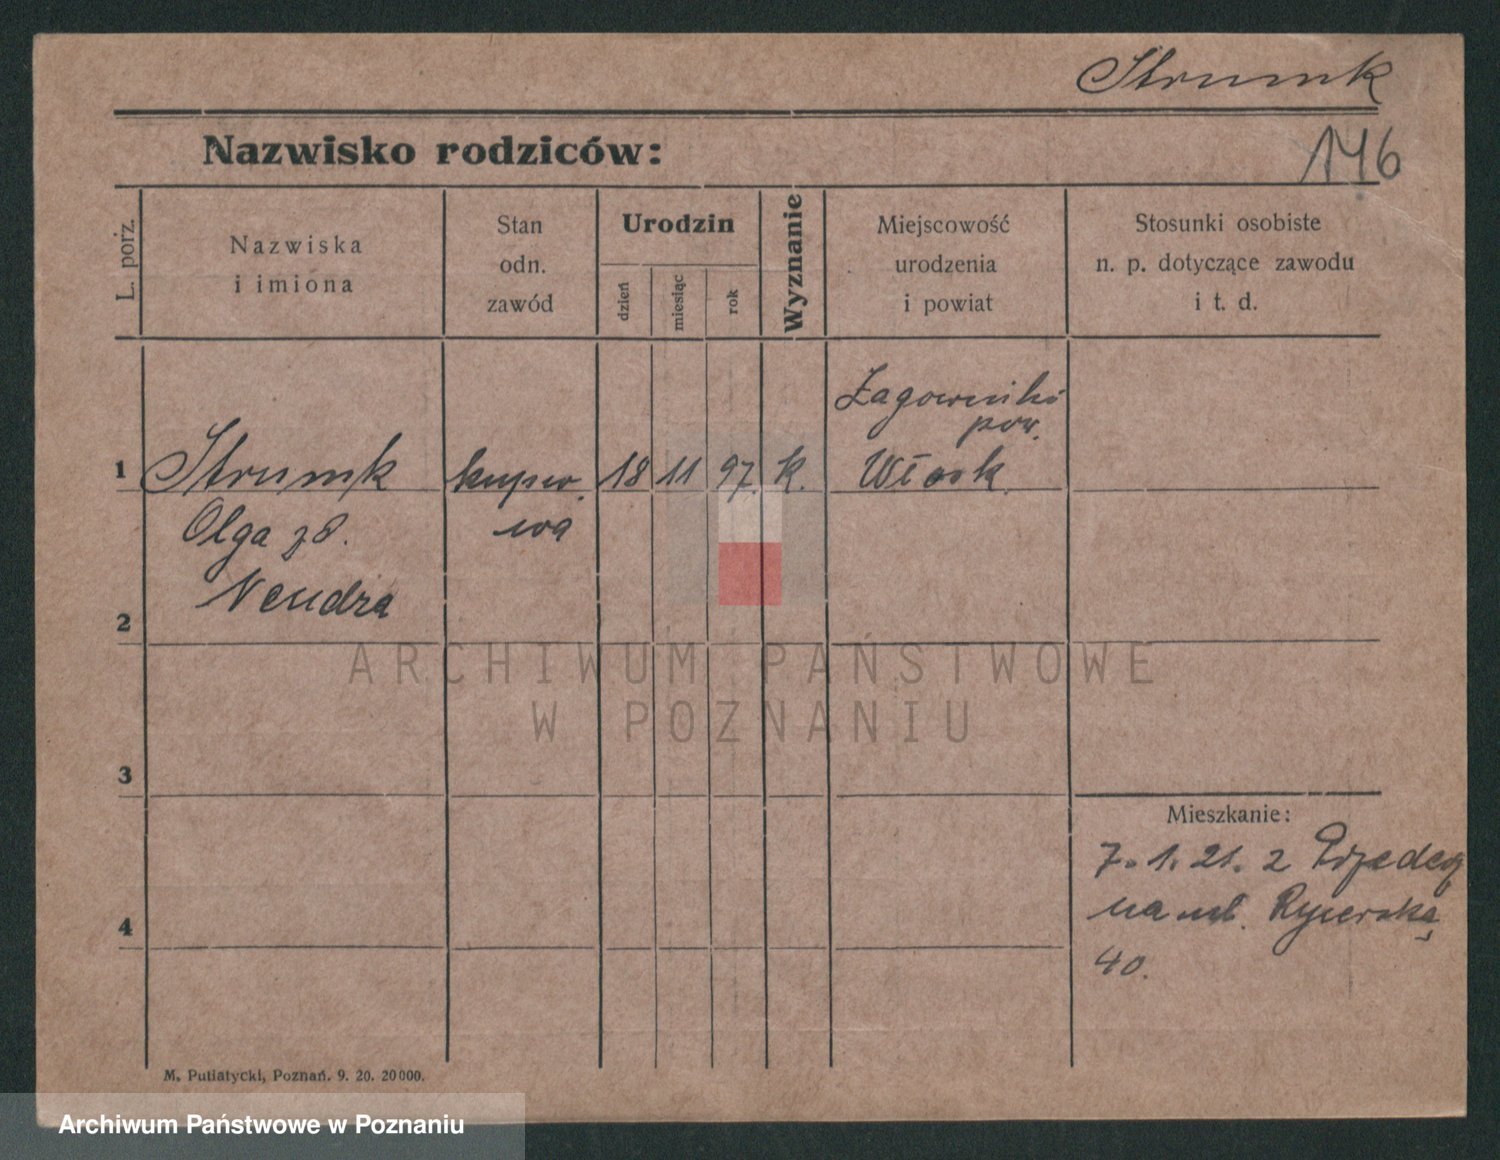 Strumk
146
Nazwisko rodziców:
L. porz.
Nazwiska
i imiona
Stan
odn.
zawód
Urodzin
dzień
miesiąc
rok
Wyznanie
Miejscowość
urodzenia
i powiat
Stosunki osobiste
n. p. dotyczące zawodu
i t. d.
Łagowniki
pow.
1 Strumk 18 11 97. k. Włosk.
Olga zd.
wa
2
3
Mieszkanie:
7. 1. 21. z
na ul. Rycerską
4
40.
M. Putiatycki, Poznań. 9. 20. 20000.
ARCHIWUM PAŃSTWOWE
W POZNANIU
Archiwum Państwowe w Poznaniu